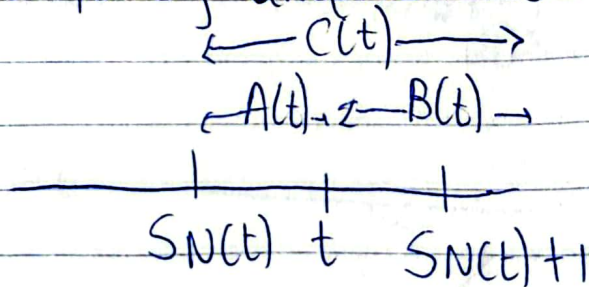 C(t)
A(t) B(t)
SN(t) t SN(t)+1